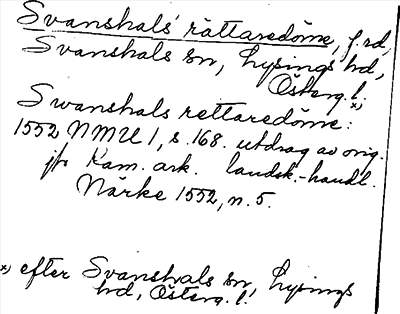 Svanshals' rättaredöme, f.rd,
Svanshals sn, Lysings hd,
Österg.l.x)
Swanshals rettaredöme:
1552 NMU 1, s. 168. utdrag av orig.
jfr Kam. ark. landsk.-handl.
Närke 1552, n. 5.
x) efter Svanshals sn, Lysings
hd, Österg. l.